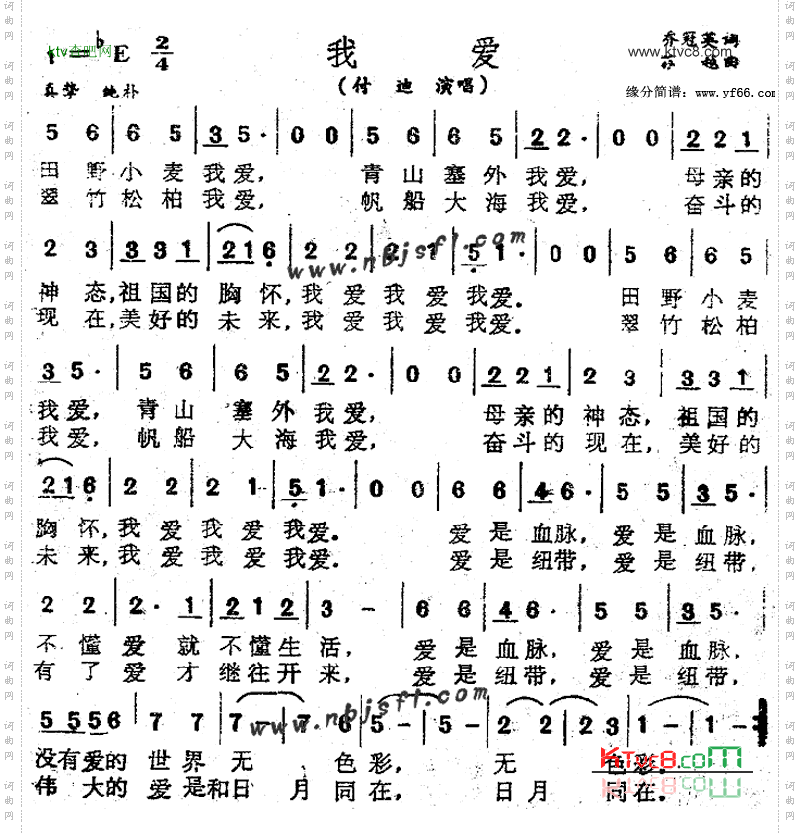 1=♭E 2/4
ktv杏吧网
我 爱
乔冠英词
www.ktvc8.com
曲
真挚 纯朴
(付 迪 演唱)
缘分简谱：www.yf66.com
5 6 | 6 5 | 3 5· | 0 0 | 5 6 | 6 5 | 2 2· | 0 0 | 2 2 1 |
田野小麦我爱, 青山塞外我爱, 母亲的
翠竹松柏我爱, 帆船大海我爱, 奋斗的
2 3 | 3 3 1 | 2 1 6 | 2 2 | 2 1 | 5 1· | 0 0 | 5 6 | 6 5 |
www.nbjsfl.com
神态,祖国的胸怀,我爱我爱我爱. 田野小麦
现在,美好的未来,我爱我爱我爱. 翠竹松柏
3 5· | 5 6 | 6 5 | 2 2· | 0 0 | 2 2 1 | 2 3 | 3 3 1 |
我爱, 青山塞外我爱, 母亲的神态, 祖国的
我爱, 帆船大海我爱, 奋斗的现在, 美好的
2 1 6 | 2 2 | 2 1 | 5 1· | 0 0 | 6 6 | 4 6· | 5 5 | 3 5· |
胸怀,我爱我爱我爱. 爱是血脉, 爱是血脉,
未来,我爱我爱我爱. 爱是纽带, 爱是纽带,
2 2 | 2· 1 | 2 1 2 | 3 - | 6 6 | 4 6· | 5 5 | 3 5· |
不懂爱就不懂生活, 爱是血脉, 爱是血脉,
有了爱才继往开来, 爱是纽带, 爱是纽带,
www.nbjsfl.com
5 5 5 6 | 7 7 | 7 - | 7 6 | 5 - | 5 - | 2 2 | 2 2 3 | 1 - | 1 - :||
没有爱的世界无 色彩, 无 色彩.
KTvc8.com
伟大的爱是和日月同在, 日月 同在.
词曲网
词曲网
词曲网
词曲网
词曲网
词曲网
词曲网
词曲网
词曲网
词曲网
词曲网
词曲网
词曲网
词曲网